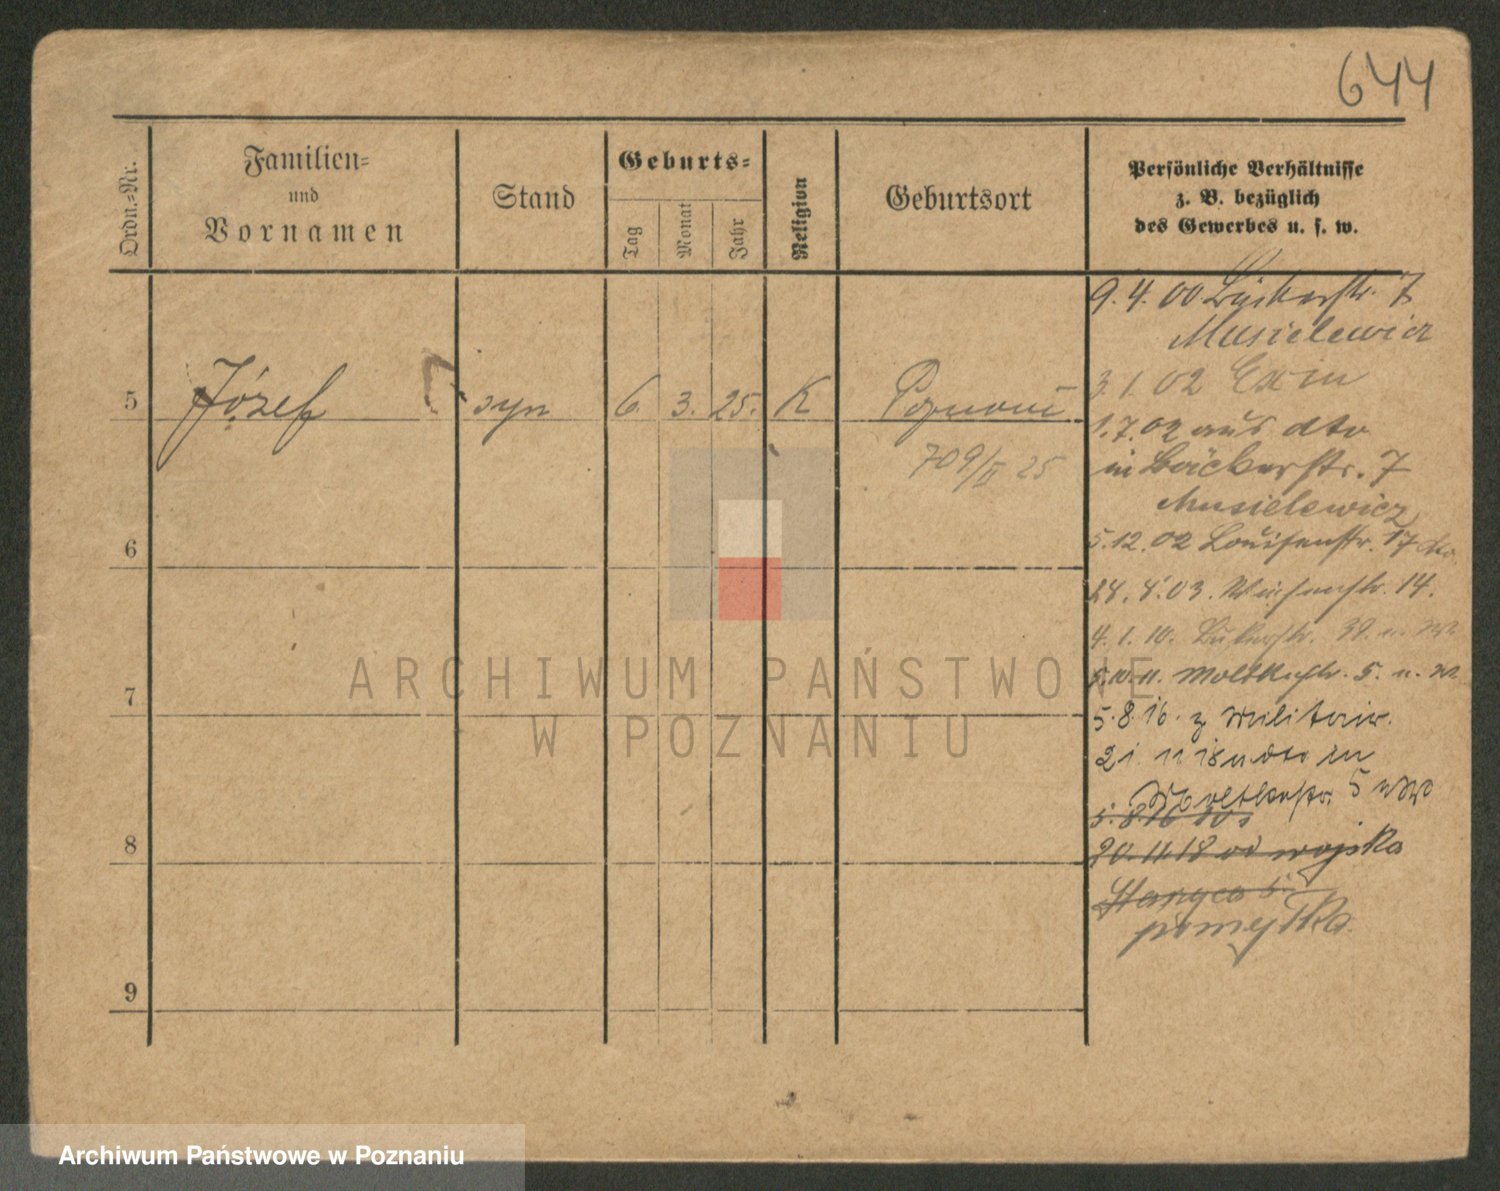 644
Ordn.-Nr.
Familien-
und
Vornamen
Stand
Geburts-
Tag
Monat
Jahr
Religion
Geburtsort
Persönliche Verhältnisse
z. B. bezüglich
des Gewerbes u. s. w.
5
Józef
syn
6.
3.
25.
K
Poznań
709/II 25
6
7
8
9
9. 4. 00 Bäckerstr. 7
Musielewicz
3. 1. 02 Exin
1. 7. 02 aus dto
in Bäckerstr. 7
Musielewicz
5. 12. 02 Louisenstr. 17 dto
28. 8. 03. 14.
4. 1. 10.
5. 10. 11. Moltkestr. 5.
5. 8. 16. z Militair.
21 11 18 u dto in
Moltkestr. 5
5. 8. 16 do
20. 11. 18 od wojska
pomyłka.
ARCHIWUM PAŃSTWOWE
W POZNANIU
Archiwum Państwowe w Poznaniu